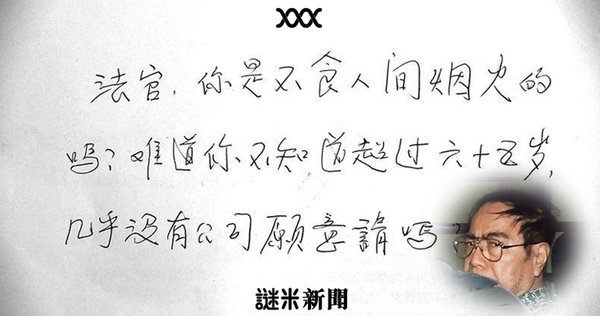 XXX
法官.你是不食人间烟火的
吗?难道你不知道超过六十五岁,
几乎没有公司願意請嗎?
謎米新聞